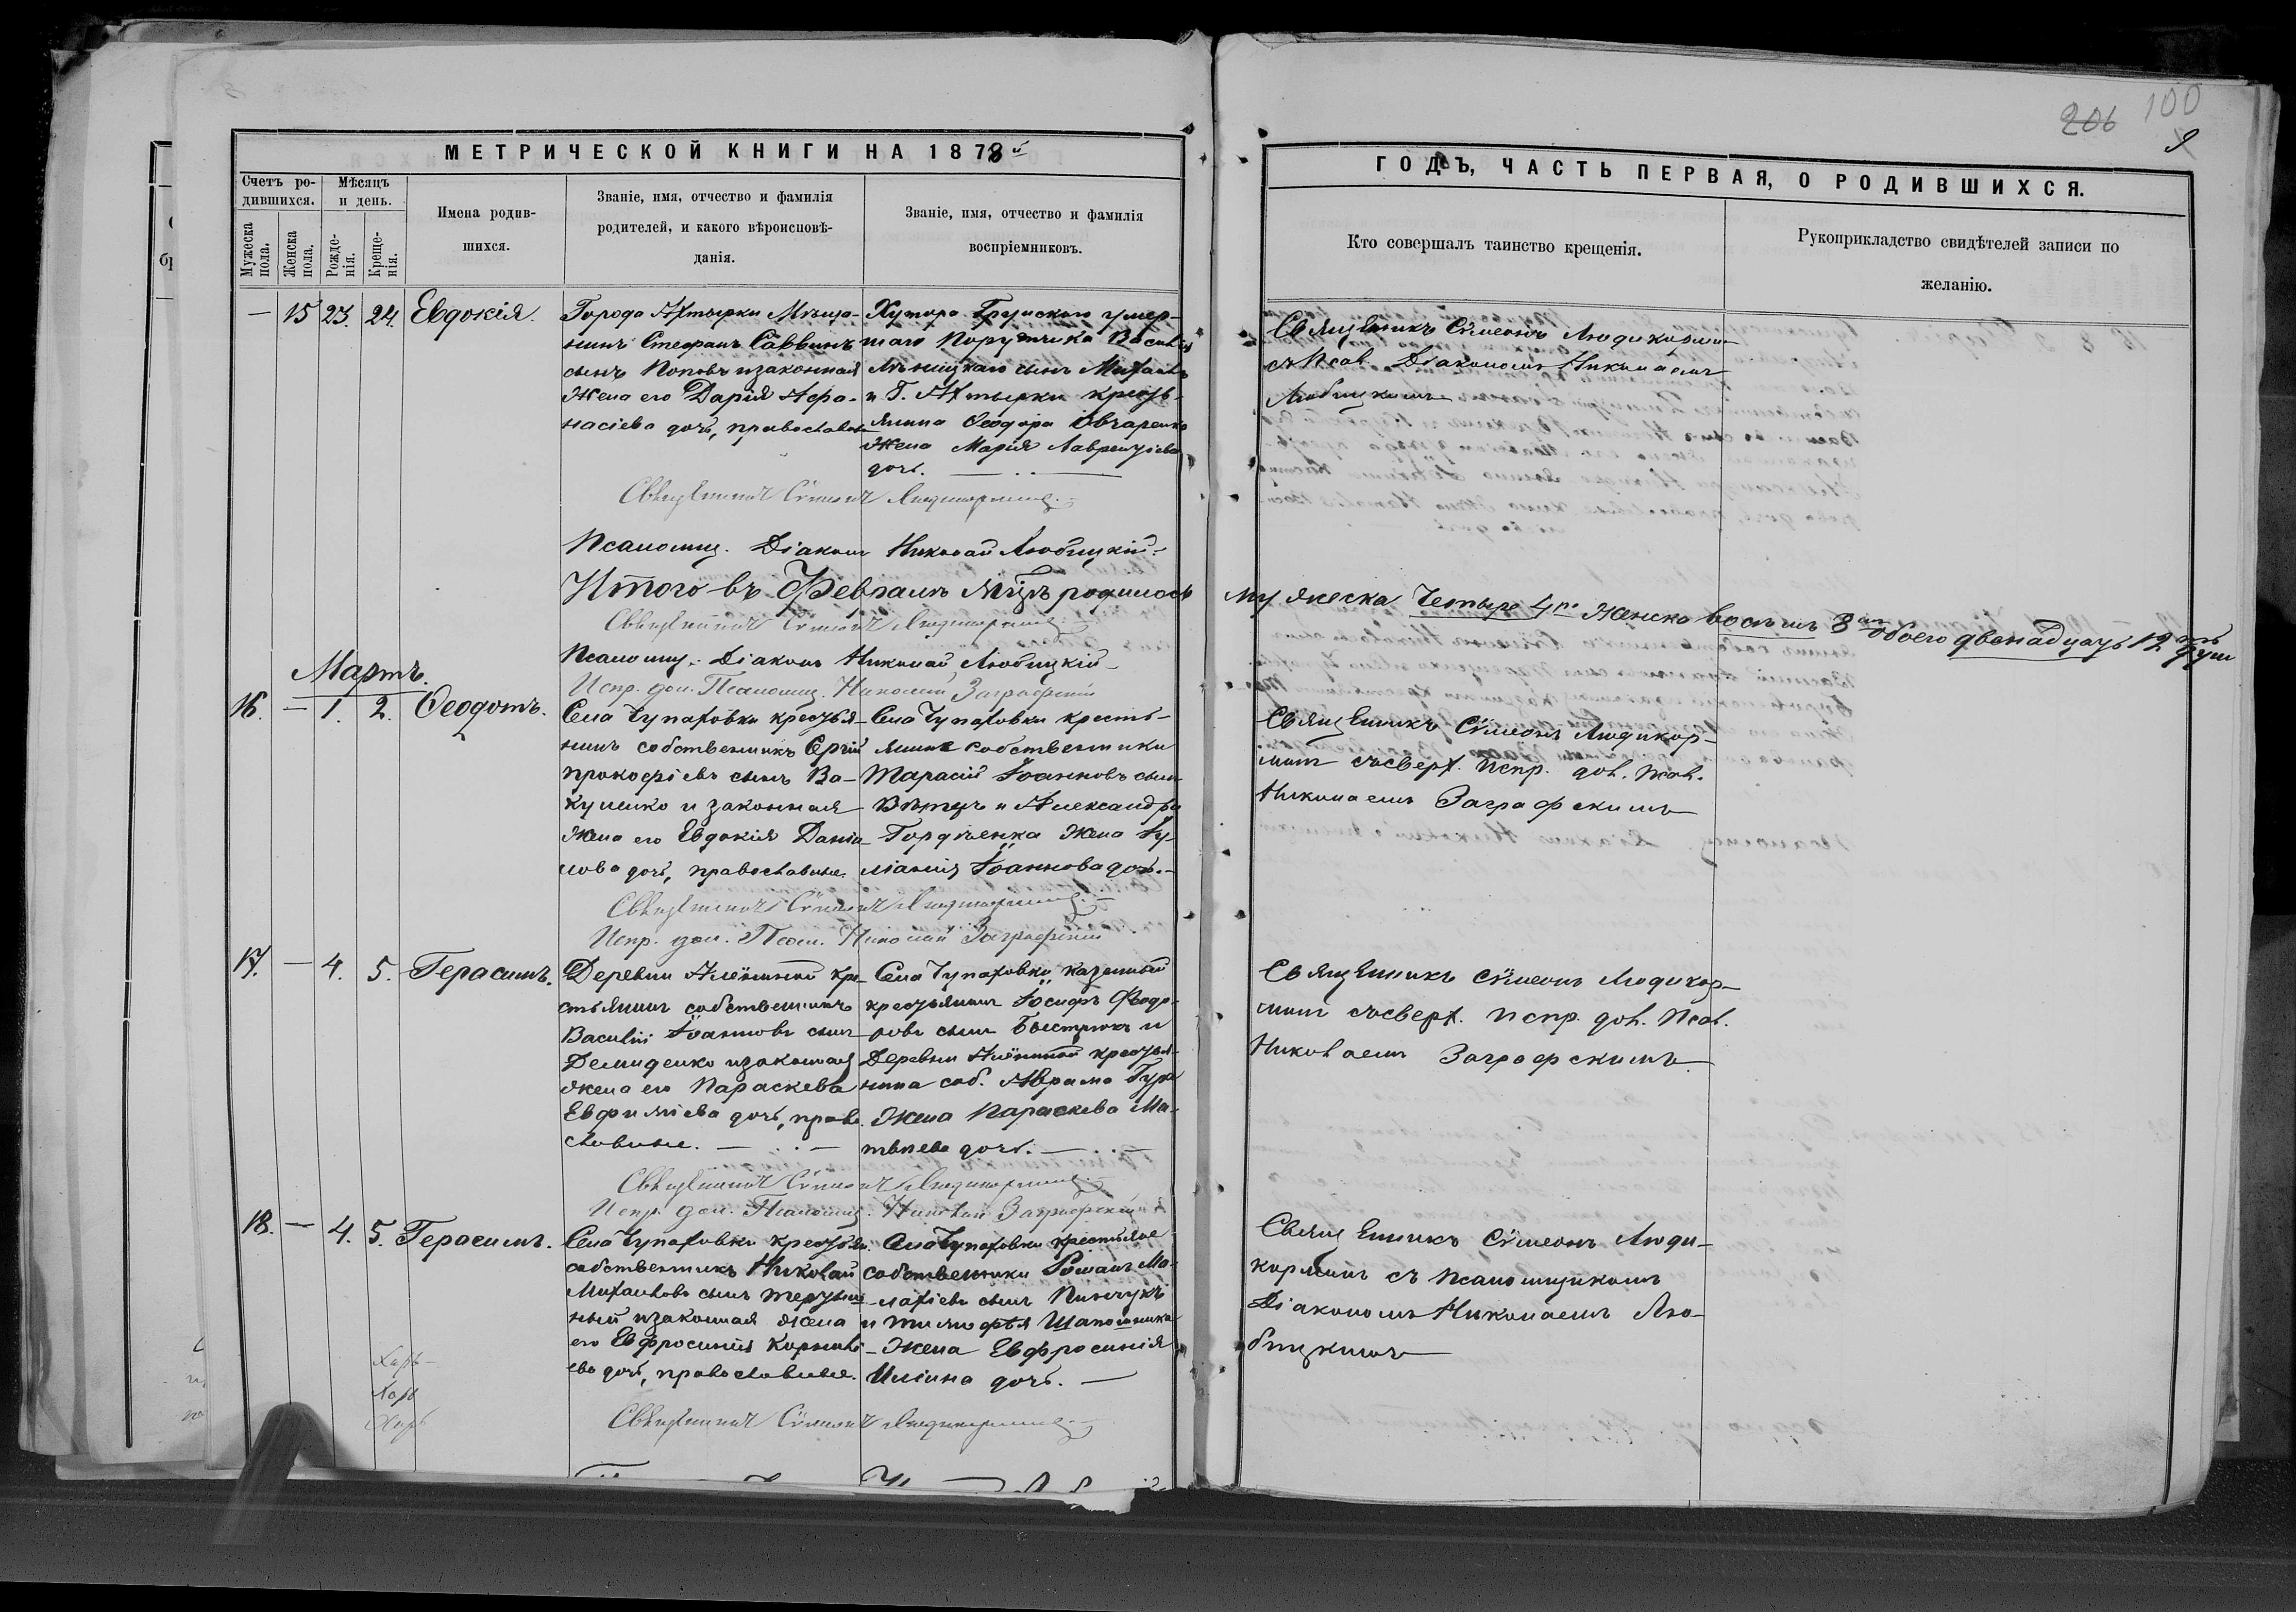 206 100
9
МЕТРИЧЕСКОЙ КНИГИ НА 1878й
ГОДЪ, ЧАСТЬ ПЕРВАЯ, О РОДИВШИХСЯ.
Счетъ ро-
дившихся.
Мѣсяцъ
и день.
Мужеска
пола.
Женска
пола.
Рожде-
нія.
Креще-
нія.
Имена родив-
шихся.
Званіе, имя, отчество и фамилія
родителей, и какого вѣроисповѣ-
данія.
Званіе, имя, отчество и фамилія
воспріемниковъ.
Кто совершалъ таинство крещенія.
Рукоприкладство свидѣтелей записи по
желанію.
— 15 23. 24. Евдокія.
Города Ахтырки Мѣща-
нинъ Стефанъ Саввинъ
сынъ Поповъ и законная
жена его Дарія Афа-
насіева дочь, православн
Хутора Грунскаго умер-
шаго Поручика Василія
сынъ Михаилъ
и Г. Ахтырки кресть-
янина Ѳеодора Овчаренко
жена Марія Лаврентіева
дочь.
Священникъ Сѵмеонъ Людикормин
съ Псал. Діакономъ Николаемъ
Любицкимъ
Священникъ Сѵмеонъ Людикорминъ
Псаломщ. Діаконъ Николай Любицкій.
Итого въ Февралѣ м‑цѣ родилось мужеска четыре 4ре женска восемь 8мь обоего двенадцать 12ть душ
Священникъ Сѵмеонъ Людикорминъ
Псаломщ. Діаконъ Николай Любицкій
Испр. дол. Псаломщ. Николай Заграфскій
Мартъ.
16. — 1. 2. Ѳеодотъ.
Села Чупаховки крестья-
нинъ собственникъ Сергій
Прокофіевъ сынъ Ва-
куленко и законная
жена его Евдокія Даніи-
лова дочь, православные.
Села Чупаховки кресть-
яне собственники
Тарасій Іоанновъ сынъ
и Александра
Гордѣенка жена Іу-
ліанія Іоаннова дочь.
Священникъ Сѵмеонъ Людикор-
минъ съ сверх. испр. дол. Псал.
Николаемъ Заграфскимъ
Священникъ Сѵмеонъ Людикорминъ
Испр. дол. Псал. Николай Заграфскій
17. — 4. 5. Герасимъ.
Деревни Алёшиной кре-
стьянинъ собственникъ
Василій Іоанновъ сынъ
Демиденко и законная
жена его Параскева
Евфиміева дочь, право-
славные.
Села Чупаховки казенный
крестьянинъ Іосифъ Ѳеодо-
ровъ сынъ Быстрикъ и
Деревни Алёшиной крестья-
нина соб. Аврама
жена Параскева Ма-
твѣева дочь.
Священникъ Сѵмеонъ Людикор-
минъ съ сверх. испр. дол. Псал.
Николаемъ Заграфскимъ
Священникъ Сѵмеонъ Людикорминъ
Испр. дол. Псаломщ. Николай Заграфскій
18. — 4. 5. Герасимъ.
Села Чупаховки крестьян.
собственникъ Николай
Михаиловъ сынъ
и законная жена
его Евфросинія Корнилі-
ева дочь, православные.
Села Чупаховки крестьяне
собственники Романъ Ма-
лахіевъ сынъ Пинчукъ
и Тимофѣя Шаполиника
жена Евфросинія
Иліина дочь.
Священникъ Сѵмеонъ Люди-
корминъ съ псаломщикомъ
Діакономъ Николаемъ Лю-
бицкимъ
Священникъ Сѵмеонъ Людикорминъ
Харь
Харь
Харь